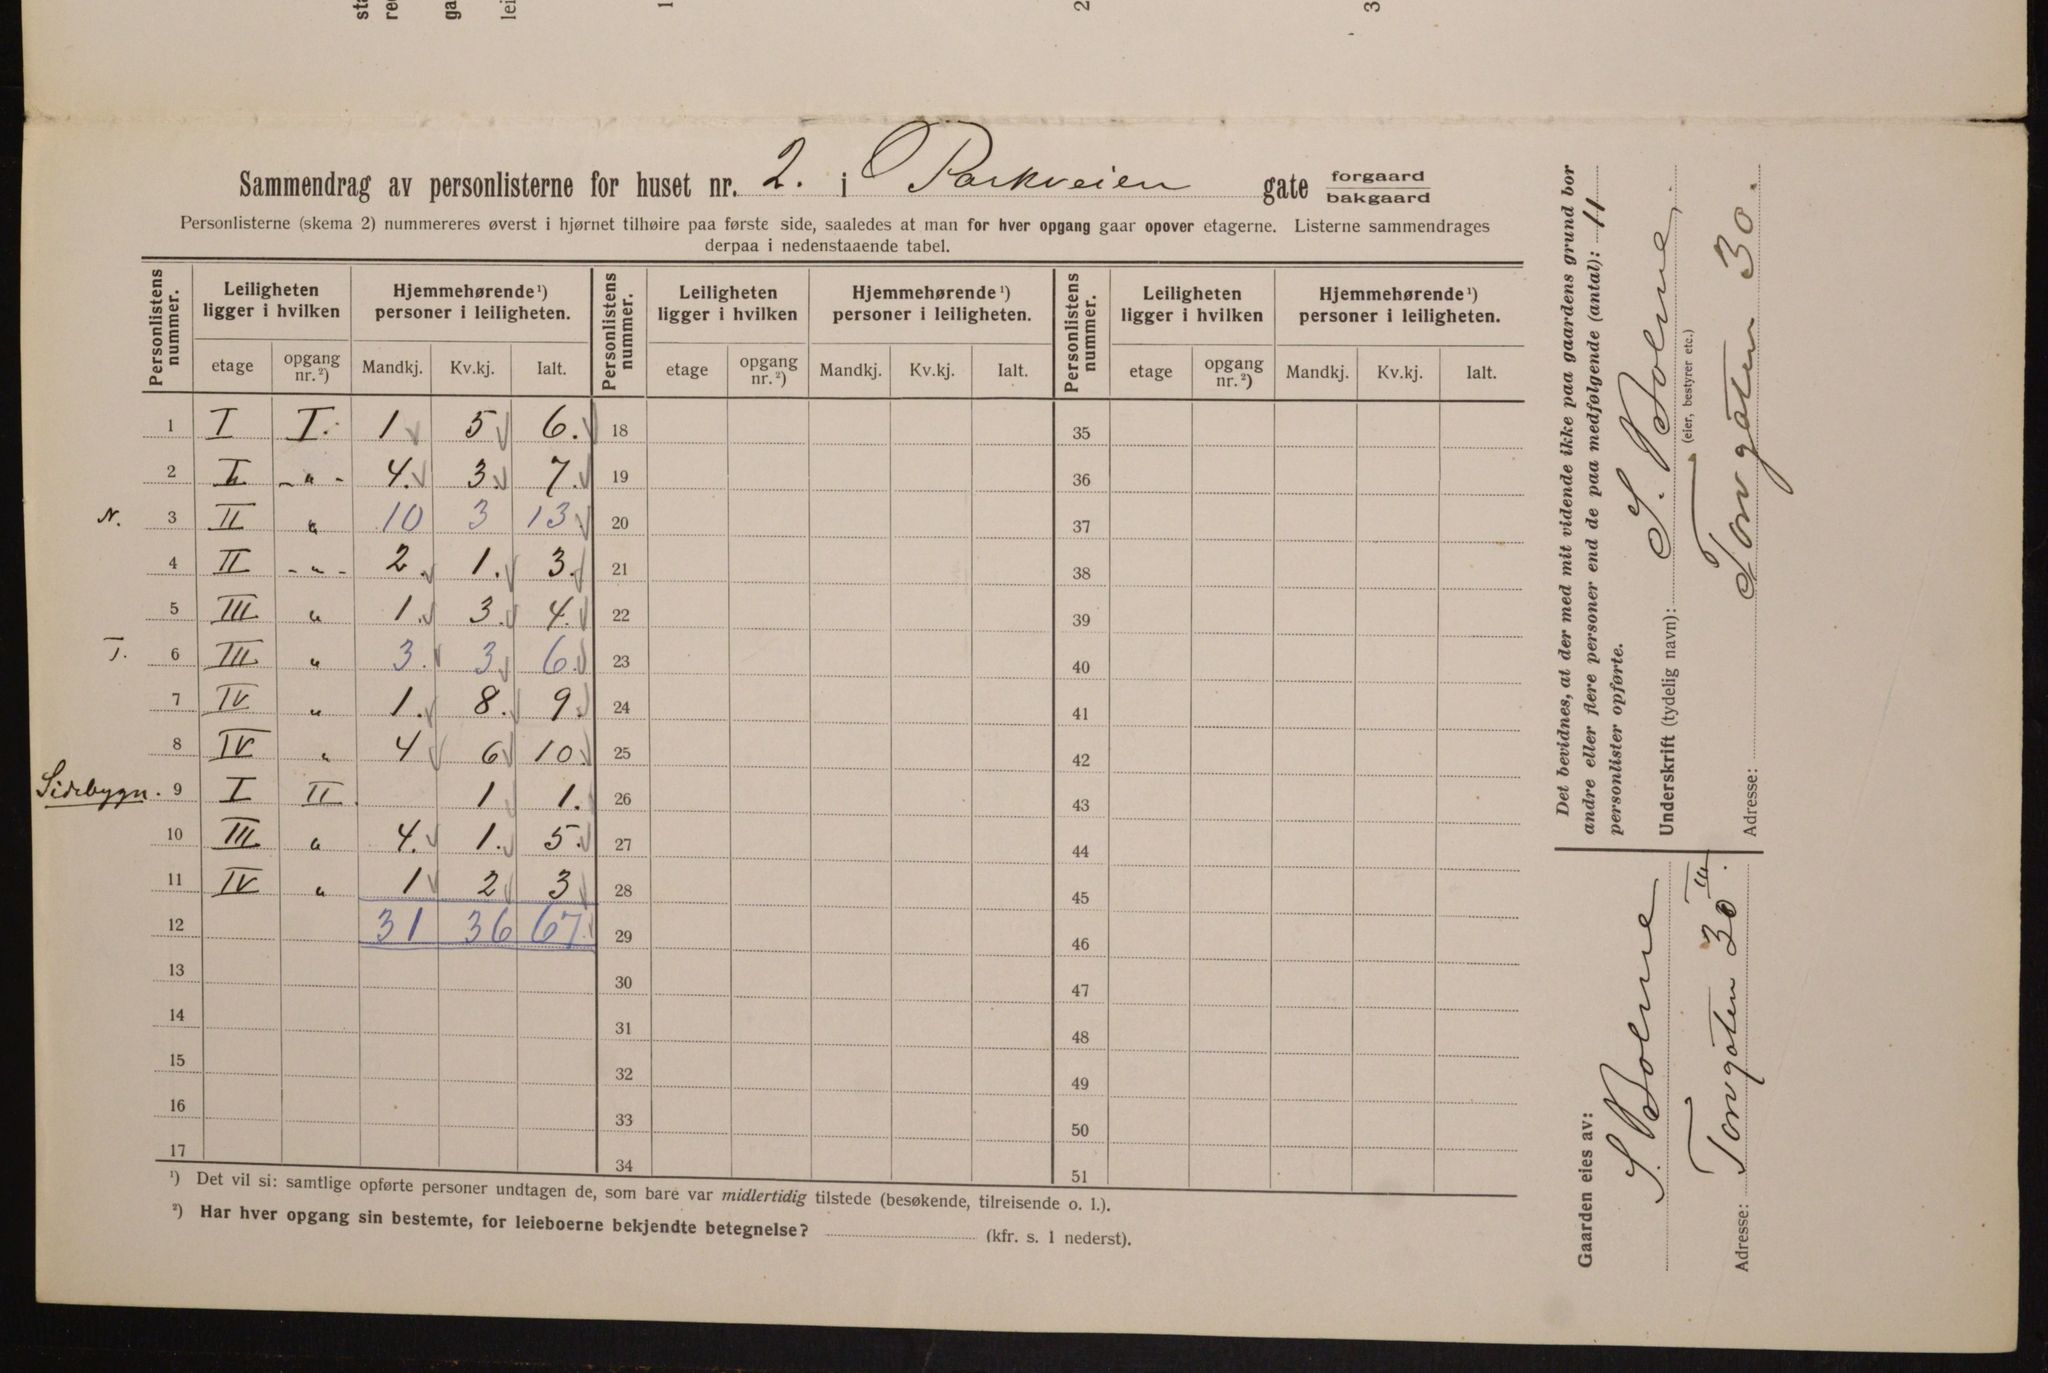 Sammendrag av personlisterne for huset nr. 2. i Parkveien gate forgaard bakgaard
Personlisterne (skema 2) nummereres øverst i hjørnet tilhøire paa første side, saaledes at man for hver opgang gaar opover etagerne. Listerne sammendrages
derpaa i nedenstaaende tabel.
Personlistens nummer. Leiligheten ligger i hvilken Hjemmehørende ¹) personer i leiligheten. Personlistens nummer. Leiligheten ligger i hvilken Hjemmehørende ¹) personer i leiligheten. Personlistens nummer. Leiligheten ligger i hvilken Hjemmehørende ¹) personer i leiligheten.
etage opgang nr. ²) Mandkj. Kv.kj. Ialt. etage opgang nr. ²) Mandkj. Kv.kj. Ialt. etage opgang nr. ²) Mandkj. Kv.kj. Ialt.
1 I I. 1 5 6. 18 35
2 I -„- 4. 3. 7. 19 36
N. 3 II „ 10 3 13 20 37
4 II -„- 2. 1. 3. 21 38
5 III „ 1. 3. 4. 22 39
T. 6 III „ 3. 3. 6. 23 40
7 IV „ 1. 8. 9. 24 41
8 IV „ 4 6 10. 25 42
Sidebygn. 9 I II. 1 1. 26 43
10 III „ 4. 1. 5. 27 44
11 IV „ 1 2 3 28 45
12 31 36 67. 29 46
13 30 47
14 31 48
15 32 49
16 33 50
17 34 51
¹) Det vil si: samtlige opførte personer undtagen de, som bare var midlertidig tilstede (besøkende, tilreisende o. l.).
²) Har hver opgang sin bestemte, for leieboerne bekjendte betegnelse? (kfr. s. 1 nederst).
Det bevidnes, at der med mit vidende ikke paa gaardens grund bor
andre eller flere personer end de paa medfølgende (antal): 11
personlister opførte.
Underskrift (tydelig navn): S. Bolme.
(eier, bestyrer etc.)
Adresse: Torvgaten 30.
Gaarden eies av:
S. Bolme
Adresse: Torvgaten 30 III.